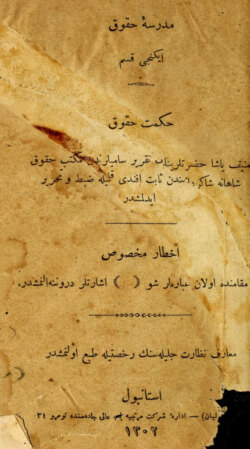 مدرسهٔ حقوق
ایکنجی قسم
حکمت حقوق
منیف پاشا حضرتلرینك تقریر سامیلرندن مکتب حقوق
شاهانه شاکردانندن ثابت افندی قلمیله ضبط و تحریر
ایدلمشدر
اخطار مخصوص
مقامنده اولان عباره‌لر شو ( ) اشارتلر دروننه آلنمشدر.
معارف نظارت جلیله‌سنك رخصتیله طبع اولنمشدر
استانبول
— ادارهٔ شرکت مرتبیه باب عالی جاده‌سنده نومرو ٣٤
١٣٠٢